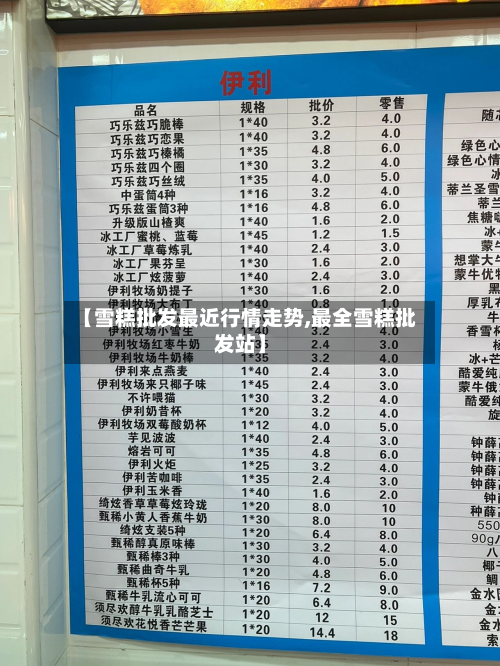 伊利
品名 规格 批价 零售
巧乐兹巧脆棒 1*40 3.2 4.0
巧乐兹巧恋果 1*40 3.2 4.0
巧乐兹巧榛橘 1*35 4.8 6.0
巧乐兹四个圈 1*30 3.2 4.0
巧乐兹巧丝绒 1*35 4.0 5.0
中蛋筒4种 1*16 3.2 4.0
巧乐兹蛋筒3种 1*16 4.8 6.0
升级版山楂爽 1*40 1.6 2.0
冰工厂蜜桃、蓝莓 1*45 1.2 1.5
冰工厂草莓炼乳 1*40 2.4 3.0
冰工厂果芬呈 1*30 1.6 2.0
冰工厂炫菠萝 1*40 2.4 3.0
伊利牧场奶提子 1*30 1.6 2.0
伊利牧场大布丁 1*40 0.8 1.0
【雪糕批发最近行情走势,最全雪糕批
发站】
伊利牧场红枣牛奶 2.4 3.0
伊利牧场牛奶棒 1*35 3.2 4.0
伊利来点燕麦 1*40 2.4 3.0
伊利牧场来只椰子味 1*45 2.4 3.0
不许喂猫 1*30 3.2 4.0
伊利奶昔杯 1*20 3.2 4.0
伊利牧场双莓酸奶杯 1*12 4.0 5.0
芋见波波 1*40 2.4 3.0
熔岩可可 1*35 4.8 6.0
伊利火炬 1*25 3.2 4.0
伊利苦咖啡 1*35 2.4 3.0
伊利玉米香 1*40 1.6 2.0
绮炫香草草莓炫玲珑 1*20 8.0 10
甄稀小黄人香蕉牛奶 1*30 8.0 10
绮炫支装5种 1*20 6.4 8.0
甄稀醇真原味棒 1*30 3.2 4.0
甄稀棒3种 1*30 4.0 5.0
甄稀曲奇牛乳 1*20 4.8 6.0
甄稀杯5种 1*16 7.2 9.0
甄稀牛乳流心可可 1*20 6.4 8.0
须尽欢醇牛乳乳酪芝士 1*20 12 15
须尽欢花悦香芒芒果 1*20 14.4 18
随
绿色心
绿色心情
冰
蒂兰圣雪
蒂兰
焦糖
冰+
蒙牛
想掌大牛
蒙牛优牧
黑
厚乳
牛
香雪
冰+芒
酷爱纯
蒙牛俄
酷爱纯
旋
钟薛
钟薛
钟薛
钟薛
钟
种薛
550
90g
八
椰子
鲷
金水
金
金水
索